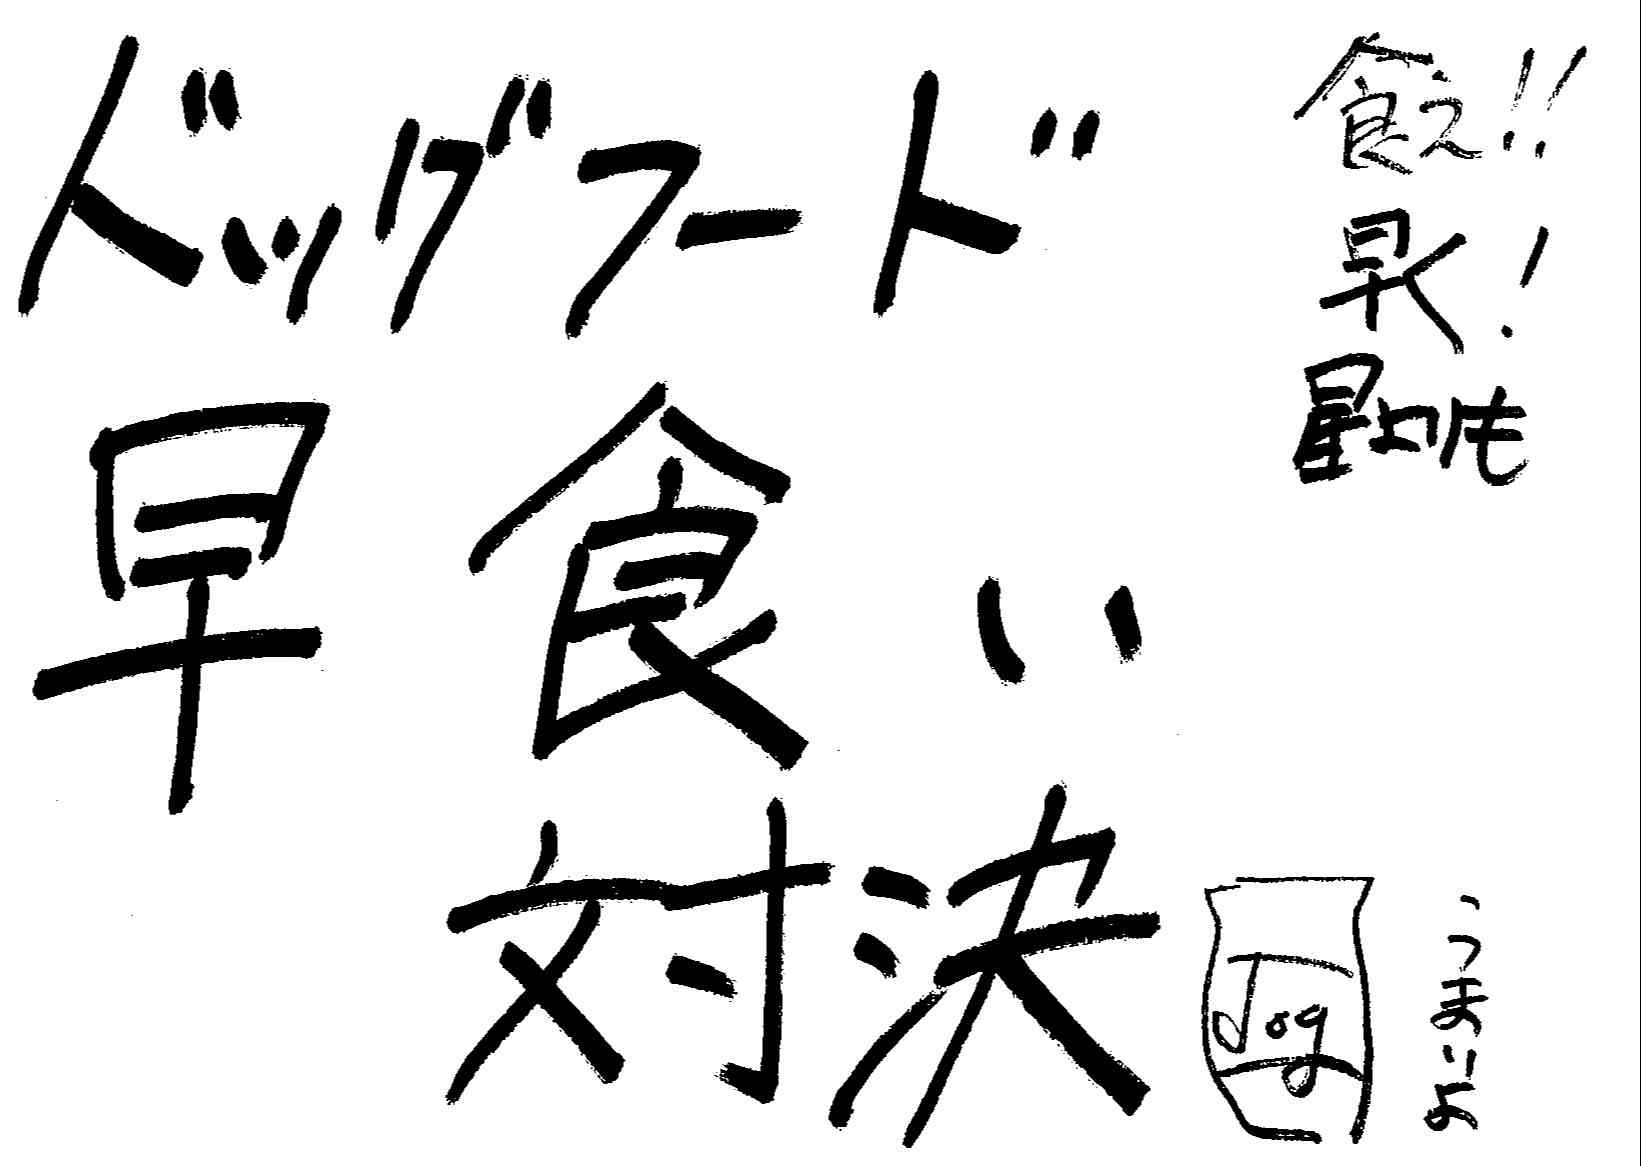 ドッグフード
早食い
対決
食え!!
早く!
星よりも
dog
うまいよ